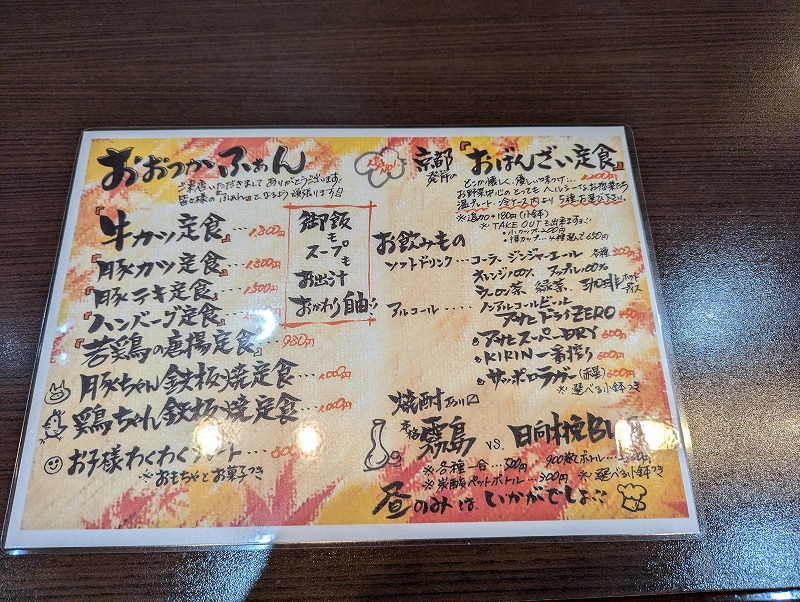 おおつかふぁん
ご来店いただきましてありがとうございます。
皆さ様の『ふぁん』となるよう頑張ります
『牛カツ定食』…1,800円
『豚カツ定食』…1,300円
『豚テキ定食』…1,500円
『ハンバーグ定食』
『若鶏の唐揚定食』…980円
豚ちゃん鉄板焼定食…1,000円
鶏ちゃん鉄板焼定食…1,000円
お子様わくわくプレート…
※おもちゃとお菓子つき
御飯
も
スープも
お出汁
おかわり自由!!
京都
発祥の
『おばんざい定食』
どこか懐しく、優しい味つけ…
お野菜中心のとってもヘルシーなお惣菜たち
温プレート・冷ケース内より5種お選び下さい。
※追加+180円(小鉢)
※TAKE OUTも出来ますョ!!
お飲みもの
ソフトドリンク…コーラ、ジンジャーエール 各種300円
オレンジ100% アップル100%
ウーロン茶 緑茶 珈琲 ホット アイス
アルコール…ノンアルコールビール
アサヒドライZERO 450円
アサヒスーパーDRY 600円
KIRIN一番搾り 600円
サッポロラガー(赤星) 600円
※選べる小鉢つき
焼酎
本格 霧島 VS. 日向木挽
※各種一合…500円 900mlボトル…
※選べる小鉢つき
※炭酸ペットボトル…300円
昼のみは、いかがでしょ